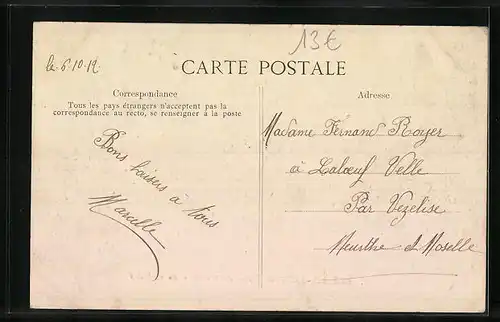 le 6.10.12
13€
CARTE POSTALE
Correspondance
Tous les pays étrangers n'acceptent pas la
correspondance au recto, se renseigner à la poste
Bons baisers à tous
Marcelle
Adresse
Madame Fernand Royer
à Laloeuf Velle
Par Vezelise
Meurthe et Moselle